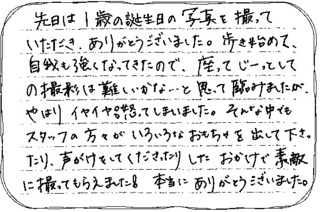 先日は1歳の誕生日の写真を撮って
いただき、ありがとうございました。歩き始めて、
自我も強くなってきたので、座ってじーっとして
の撮影は難しいかな…と思って臨みましたが、
やはりイヤイヤ炸裂してしまいました。そんな中でも
スタッフの方々がいろいろなおもちゃを出して下さっ
たり、声がけをしてくださったりしたおかげで素敵
に撮ってもらえました!! 本当にありがとうございました。